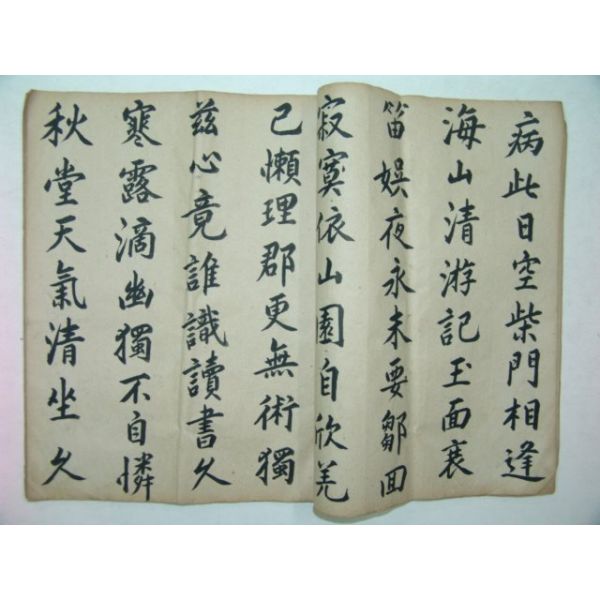 病此日空柴門相逢
海山清游記玉面衰
笛娛夜永未要鄒回
寂寞依山園自欣羌
己懶理郡更無術獨
茲心竟誰識讀書久
寒露滴幽獨不自憐
秋堂天氣清坐久